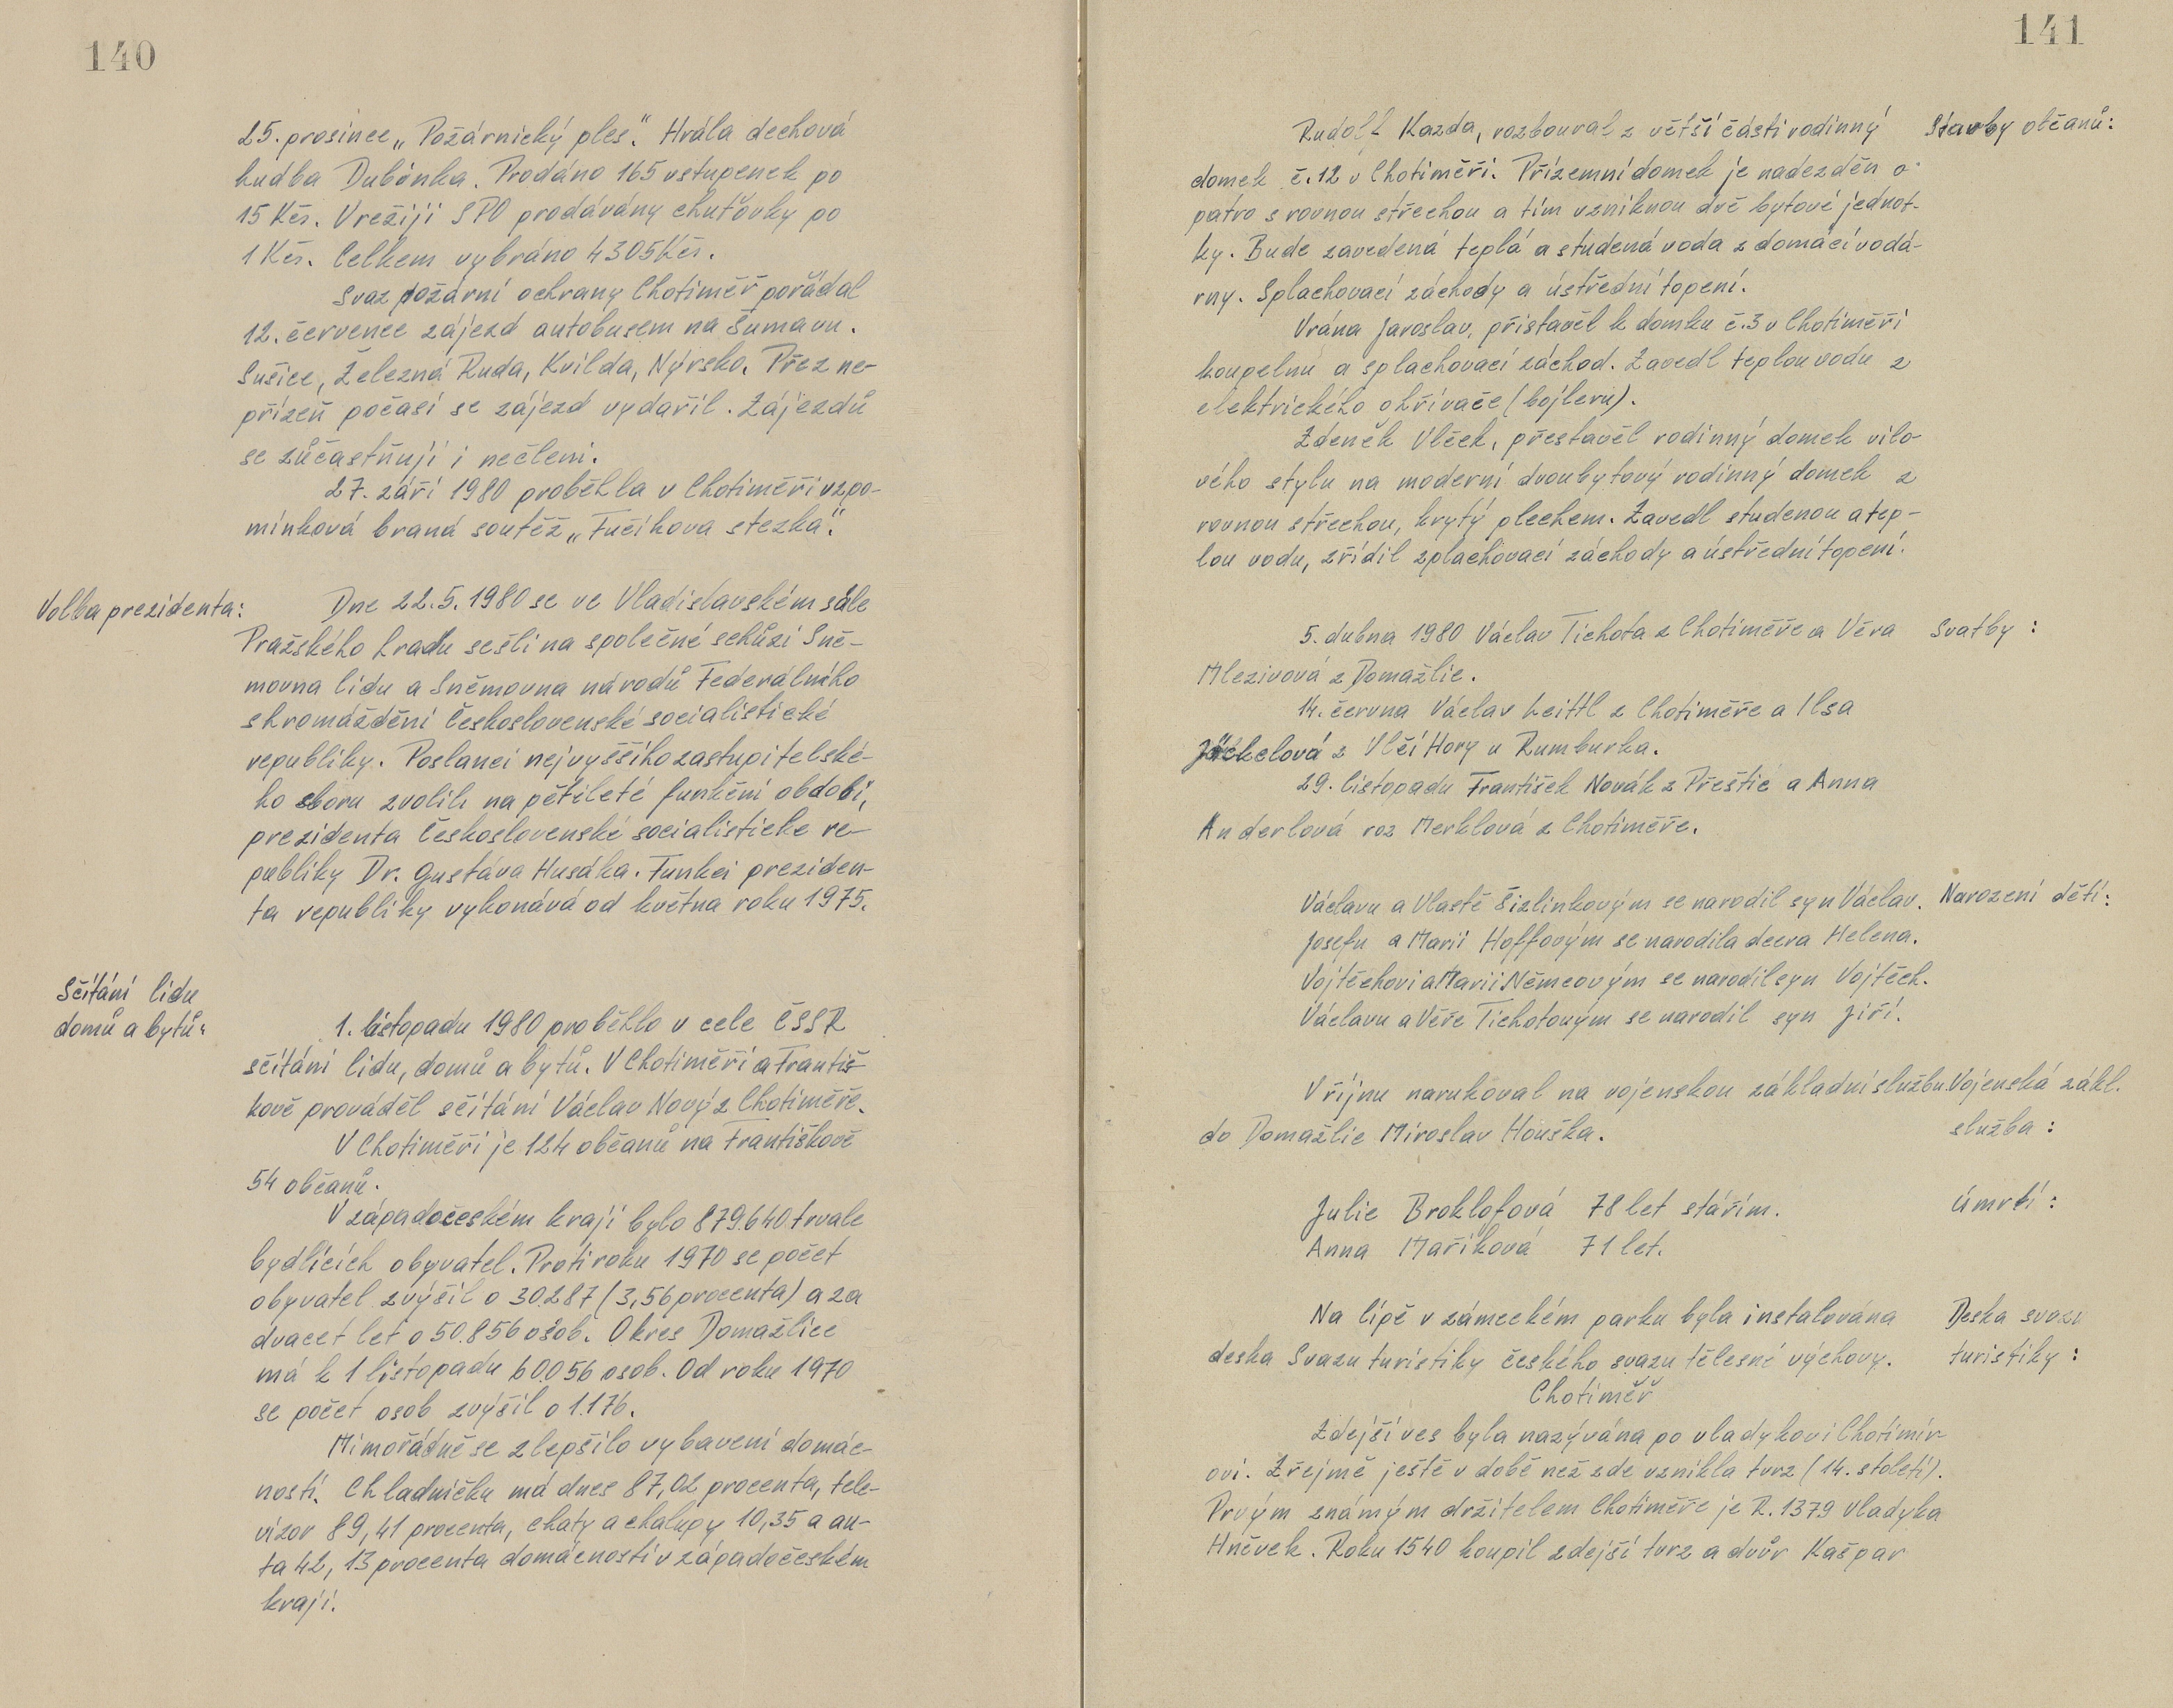 140
25. prosince „Požárnický ples“. Hrála dechová
hudba Dubinka. Prodáno 165 vstupenek po
15 Kčs. V režiji SPO prodávány chuťovky po
1 Kčs. Celkem vybráno 4305 Kčs.
Svaz požární ochrany Chotiměř pořádal
12. července zájezd autobusem na Šumavu.
Sušice, Železná Ruda, Kvilda, Nýrsko. Přez ne-
přízeň počasí se zájezd vydařil. Zájezdů
se zůčastňují i nečleni.
27. září 1980 proběhla v Chotiměři vzpo-
mínková braná soutěž „Fučíkova stezka“.
Volba prezidenta:
Dne 22.5.1980 se ve Vladislavském sále
Pražského hradu sešli na společné schůzi Sně-
movna lidu a Sněmovna národů Federálního
shromáždění Československé socialistické
republiky. Poslanci nejvyššího zastupitelské-
ho sboru zvolili na pětileté funkční období,
prezidenta Československé socialisticke re-
publiky Dr. Gustáva Husáka. Funkci preziden-
ta republiky vykonává od května roku 1975.
Sčítání lidu
domů a bytů:
1. listopadu 1980 proběhlo v cele ČSSR
sčítání lidu, domů a bytů. V Chotiměři a Františ-
kově prováděl sčítání Václav Nový z Chotiměře.
V Chotiměři je 124 občanů na Františkově
54 občanů.
V západočeském kraji bylo 879.640 trvale
bydlících obyvatel. Proti roku 1970 se počet
obyvatel zvýšil o 30.287 (3,56 procenta) a za
dvacet let o 50.856 osob. Okres Domažlice
má k 1 listopadu 60.056 osob. Od roku 1970
se počet osob zvýšil o 1.176.
Mimořádně se zlepšilo vybavení domác-
ností. Chladničku má dnes 87,02 procenta, tele-
vizor 89,41 procenta, chaty a chalupy 10,35 a au-
ta 42,13 procenta domácností v západočeském
kraji.
141
Stavby občanů:
Rudolf Kazda, rozboural z větší části rodinný
domek č.12 v Chotiměři. Přízemní domek je nadezděn o
patro s rovnou střechou a tím vzniknou dvě bytové jednot-
ky. Bude zavedená teplá a studená voda z domácí vodá-
rny. Splachovací záchody a ústřední topení.
Vrána Jaroslav, přistavěl k domku č.3 v Chotiměři
koupelnu a splachovací záchod. Zavedl teplou vodu z
elektrického ohřívače (bojleru).
Zdeněk Vlček, přestavěl rodinný domek vilo-
vého stylu na moderní dvoubytový rodinný domek z
rovnou střechou, krytý plechem. Zavedl studenou a tep-
lou vodu, zřídil zplachovací záchody a ústřední topení.
Svatby:
5. dubna 1980 Václav Tichota z Chotiměře a Věra
Mlezivová z Domažlic.
14. června Václav Leittl z Chotiměře a Ilsa
Jäckelová z Vlčí Hory u Rumburka.
29. listopadu František Novák z Přeštic a Anna
Anderlová roz Merklová z Chotiměře.
Narození dětí:
Václavu a Vlastě Šizlinkovým se narodil syn Václav.
Josefu a Marii Hoffovým se narodila dcera Helena.
Vojtěchovi a Marii Němcovým se narodil syn Vojtěch.
Václavu a Věře Tichotovým se narodil syn Jiří.
Vojenská zákl.
služba:
V říjnu narukoval na vojenskou základní službu
do Domažlic Miroslav Houška.
Úmrtí:
Julie Broklofová 78 let stářím.
Anna Maříková 71 let.
Deska svazu
turistiky:
Na lípě v zámeckém parku byla instalována
deska Svazu turistiky českého svazu tělesné výchovy.
Chotiměř
Zdejší ves byla nazývána po vladykovi Chotimír-
ovi. Zřejmě ještě v době než zde vznikla tvrz (14. století).
Prvým známým držitelem Chotiměře je R. 1379 vladyka
Hněvek. Roku 1540 koupil zdejší tvrz a dvůr Kašpar